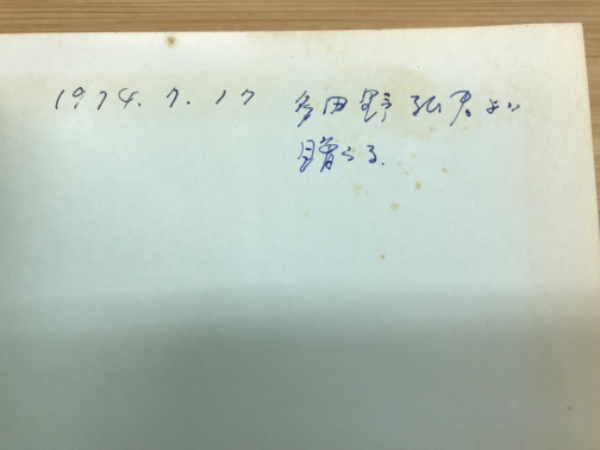 1974.7.17 多田野弘君より
贈らる.